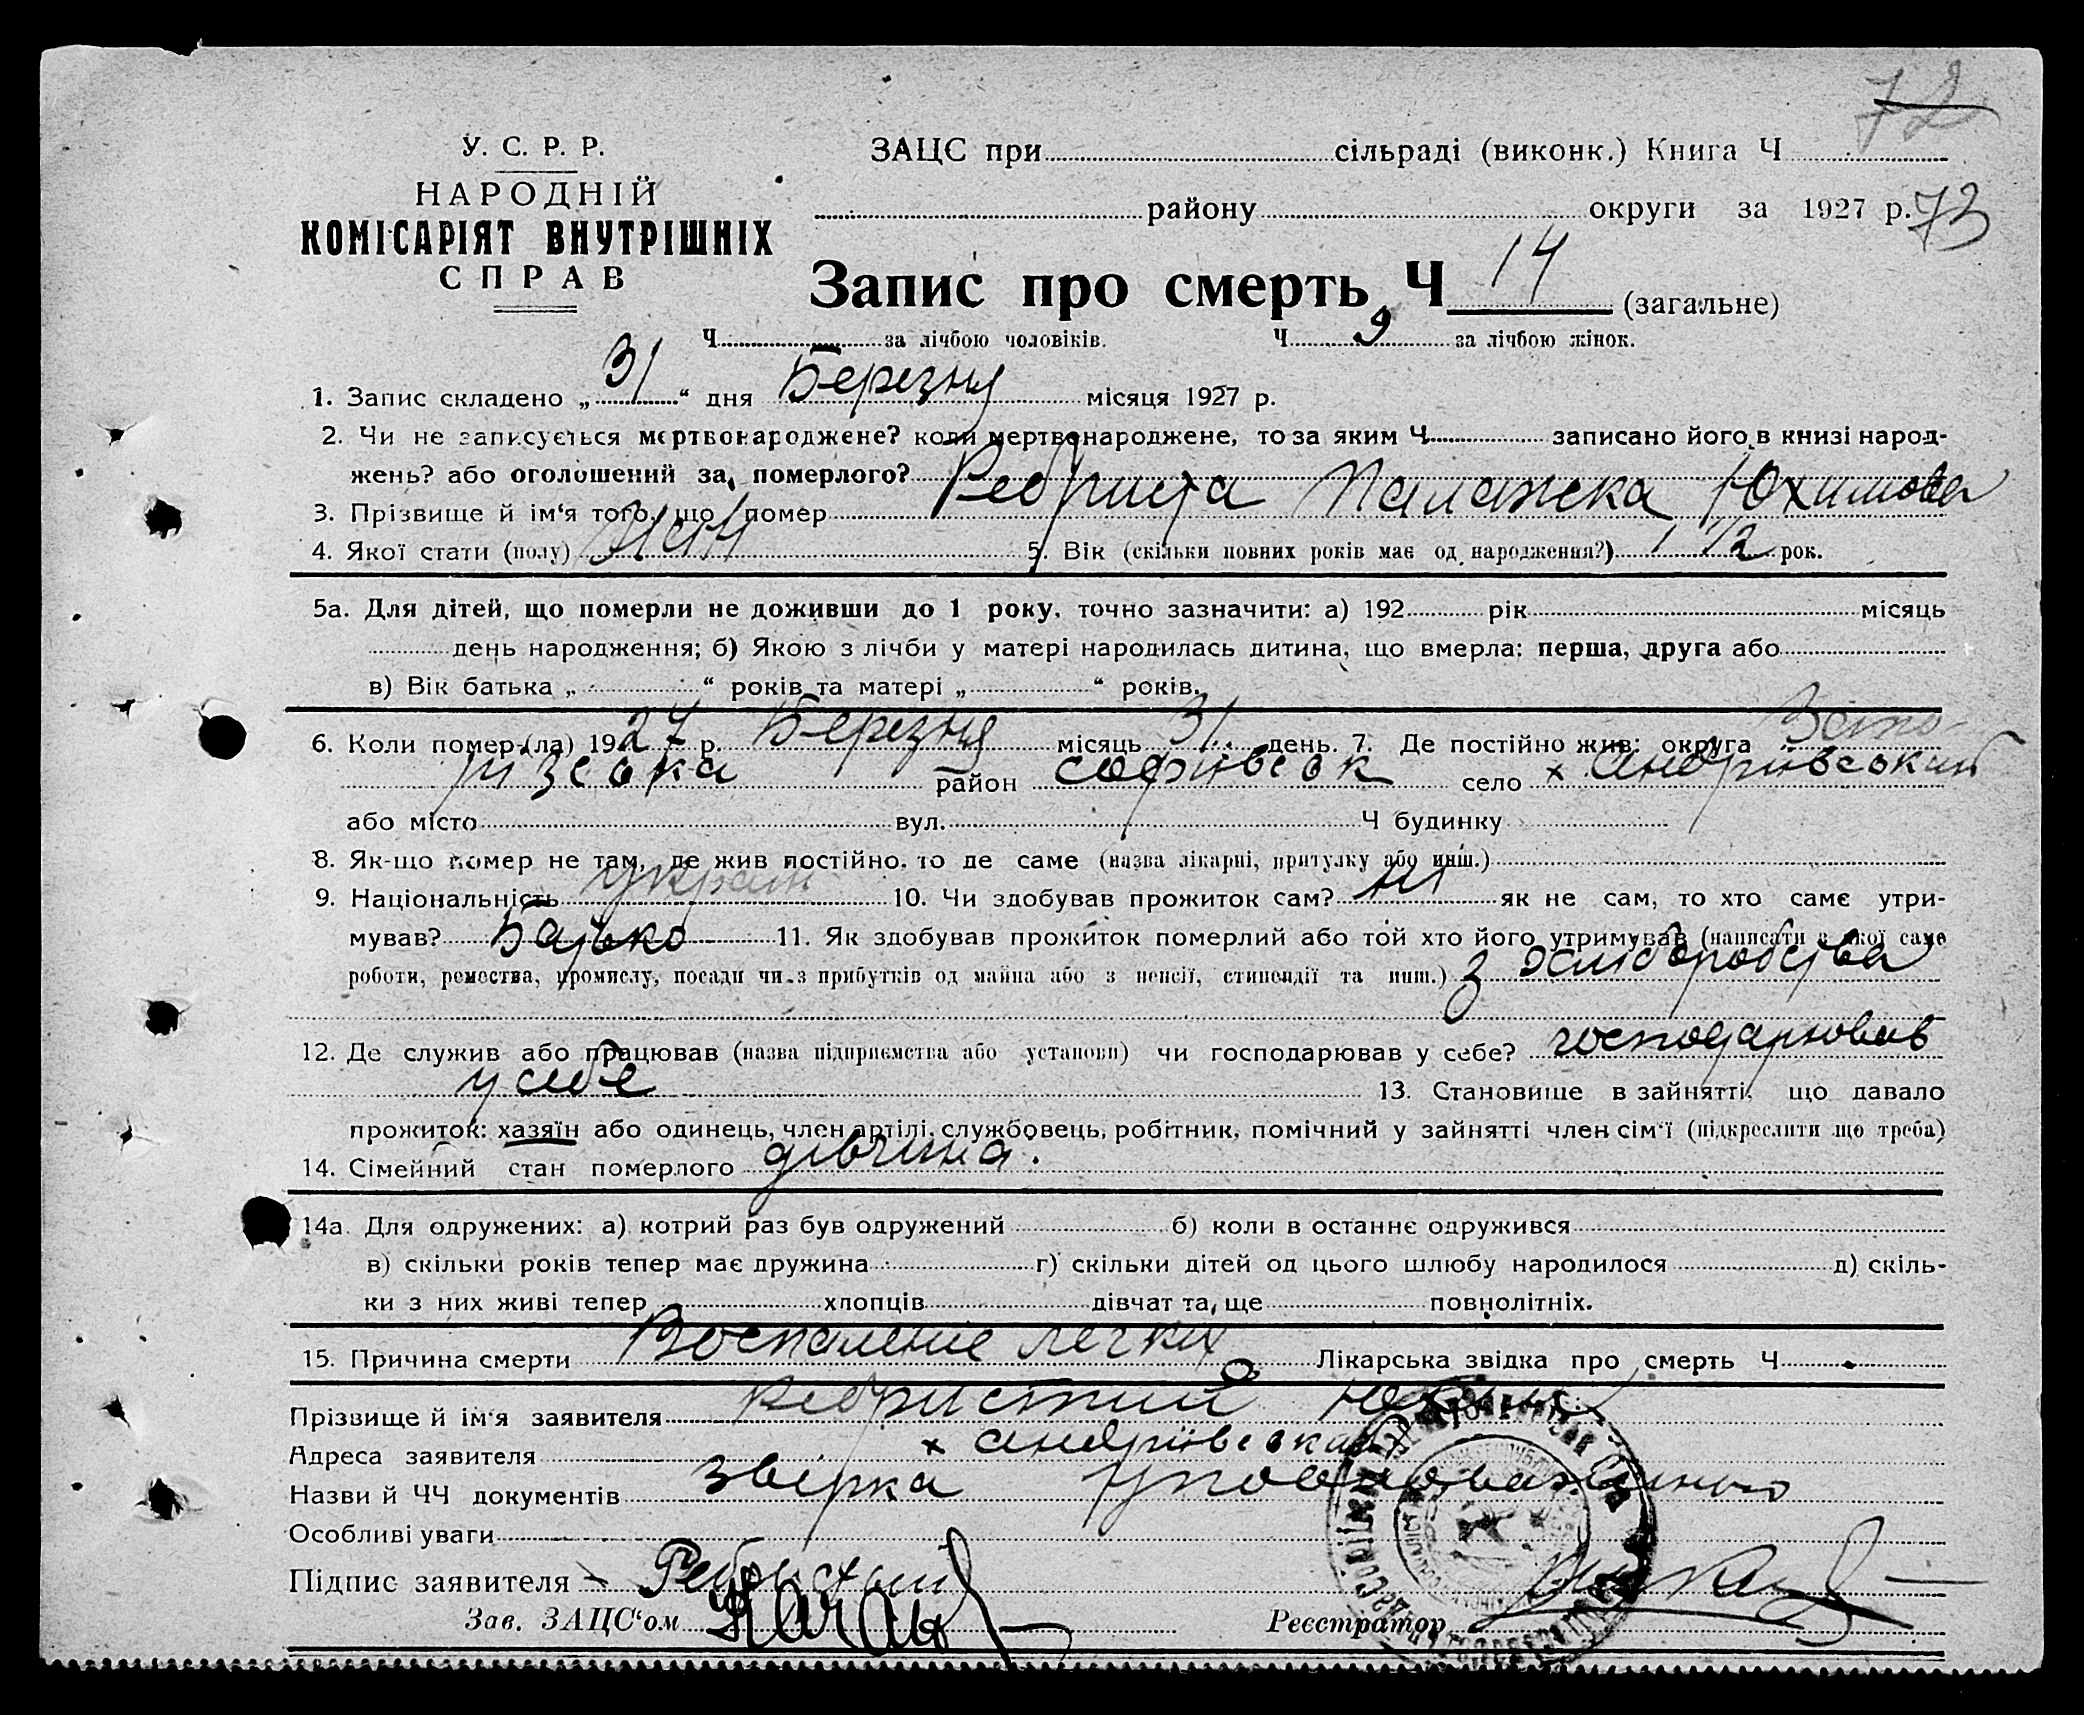 72
У. С. Р. Р.
НАРОДНІЙ
КОМІСАРІЯТ ВНУТРІШНІХ
СПРАВ
ЗАЦС при сільраді (виконк.) Книга Ч
району округи за 1927 р. 73
Запис про смерть Ч 14 (загальне)
Ч за лічбою чоловіків. Ч 9 за лічбою жінок.
1. Запис складено „31“ дня Березня місяця 1927 р.
2. Чи не записується мертвонароджене? коли мертвонароджене, то за яким Ч записано його в книзі народ-
жень? або оголошений за померлого?
3. Прізвище й ім'я того, що помер Ребриста Палажка Юхимова
4. Якої стати (полу) жін 5. Вік (скільки повних років має од народження?) 1 1/2 рок.
5а. Для дітей, що померли не доживши до 1 року, точно зазначити: а) 192 рік місяць
день народження; б) Якою з лічби у матері народилась дитина, що вмерла: перша, друга або
в) Вік батька „ “ років та матері „ “ років.
6. Коли помер (ла) 1927 р. Березня місяць 31 день. 7. Де постійно жив: округа Запо-
різська район Софиївськ село х Андриівський
або місто вул. Ч будинку
8. Як-що помер не там, де жив постійно, то де саме (назва лікарні, притулку або инш.)
9. Національність україн 10. Чи здобував прожиток сам? ні як не сам, то хто саме утри-
мував? Батько 11. Як здобував прожиток померлий або той хто його утримував (написати з якої саме
роботи, ремества, промислу, посади чи з прибутків од майна або з пенсії, стипендії та инш.) З хліборобства
12. Де служив або працював (назва підприємства або установи) чи господарював у себе? господарював
у себе 13. Становище в зайнятті, що давало
прожиток: хазяїн або одинець, член артілі, службовець, робітник, помічний у зайнятті член сім'ї (підкреслити що треба)
14. Сімейний стан померлого дівчина.
14а. Для одружених: а) котрий раз був одружений б) коли в останнє одружився
в) скільки років тепер має дружина г) скільки дітей од цього шлюбу народилося д) скіль-
ки з них живі тепер хлопців дівчат та, ще повнолітніх.
15. Причина смерти Воспаление легких Лікарська звідка про смерть Ч
Прізвище й ім'я заявителя Ребристий Юхим
Адреса заявителя х Андриївський
Назви й ЧЧ документів звірка уповноваженного
Особливі уваги
Підпис заявителя Ребристый
Зав. ЗАЦС'ом Реєстратор